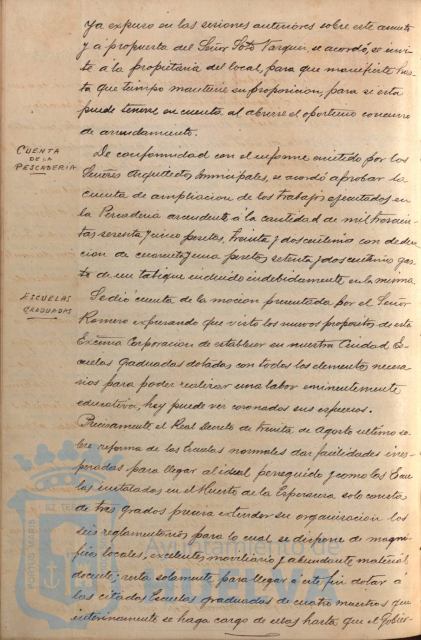 ya expuso en las sesiones anteriores sobre este asunto
y á propuesta del Señor Soto Vargas, se acordó, se invi-
te á la propietaria del local, para que manifieste has-
ta que tiempo mantiene su proposicion, para si esta
puede tenerse en cuenta al abrirse el oportuno concurso
de arrendamiento.
CUENTA
DE LA
PESCADERIA
De conformidad con el informe emitido por los
Señores Arquitectos Municipales, se acordó aprobar la
cuenta de ampliacion de los trabajos ejecutados en
la Pescaderia ascendente á la cantidad de mil trescien-
tas sesenta y cinco pesetas, treinta y dos centimos con deduc-
cion de cuarenta y una pesetas setenta y dos centimos
de un tabique incluido indebidamente en la misma.
ESCUELAS
GRADUADAS
Se dió cuenta de la mocion presentada por el Señor
Romero expresando que visto los nuevos propositos de esta
Excma Corporacion de establecer en nuestra Ciudad Es-
cuelas Graduadas dotadas con todos los elementos necesa-
rios para poder realizar una labor eminentemente
educativa, hoy puede ver coronados sus esfuerzos.
Precisamente el Real Decreto de treinta de Agosto ultimo so-
bre reforma de las Escuelas normales dar facilidades ines-
peradas para llegar al ideal perseguido y como las Escue-
las instaladas en el Huerto de la Esperanza solo consta
de tres grados precisa extender su organizacion los
seis reglamentarios para lo cual se dispone de magni-
fico locales, excelente moviliario y abundante material
docente; resta solamente para llegar á este fin dotar a
las citadas Escuelas graduadas de cuatro maestros que
interinamente se haga cargo de ellas hasta que el Gobier-
Ayuntamiento de